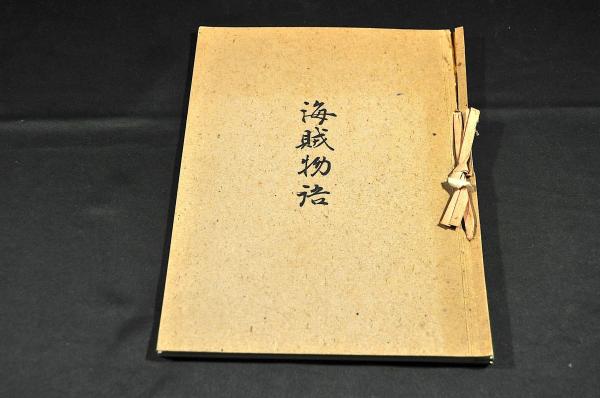 海賊物語